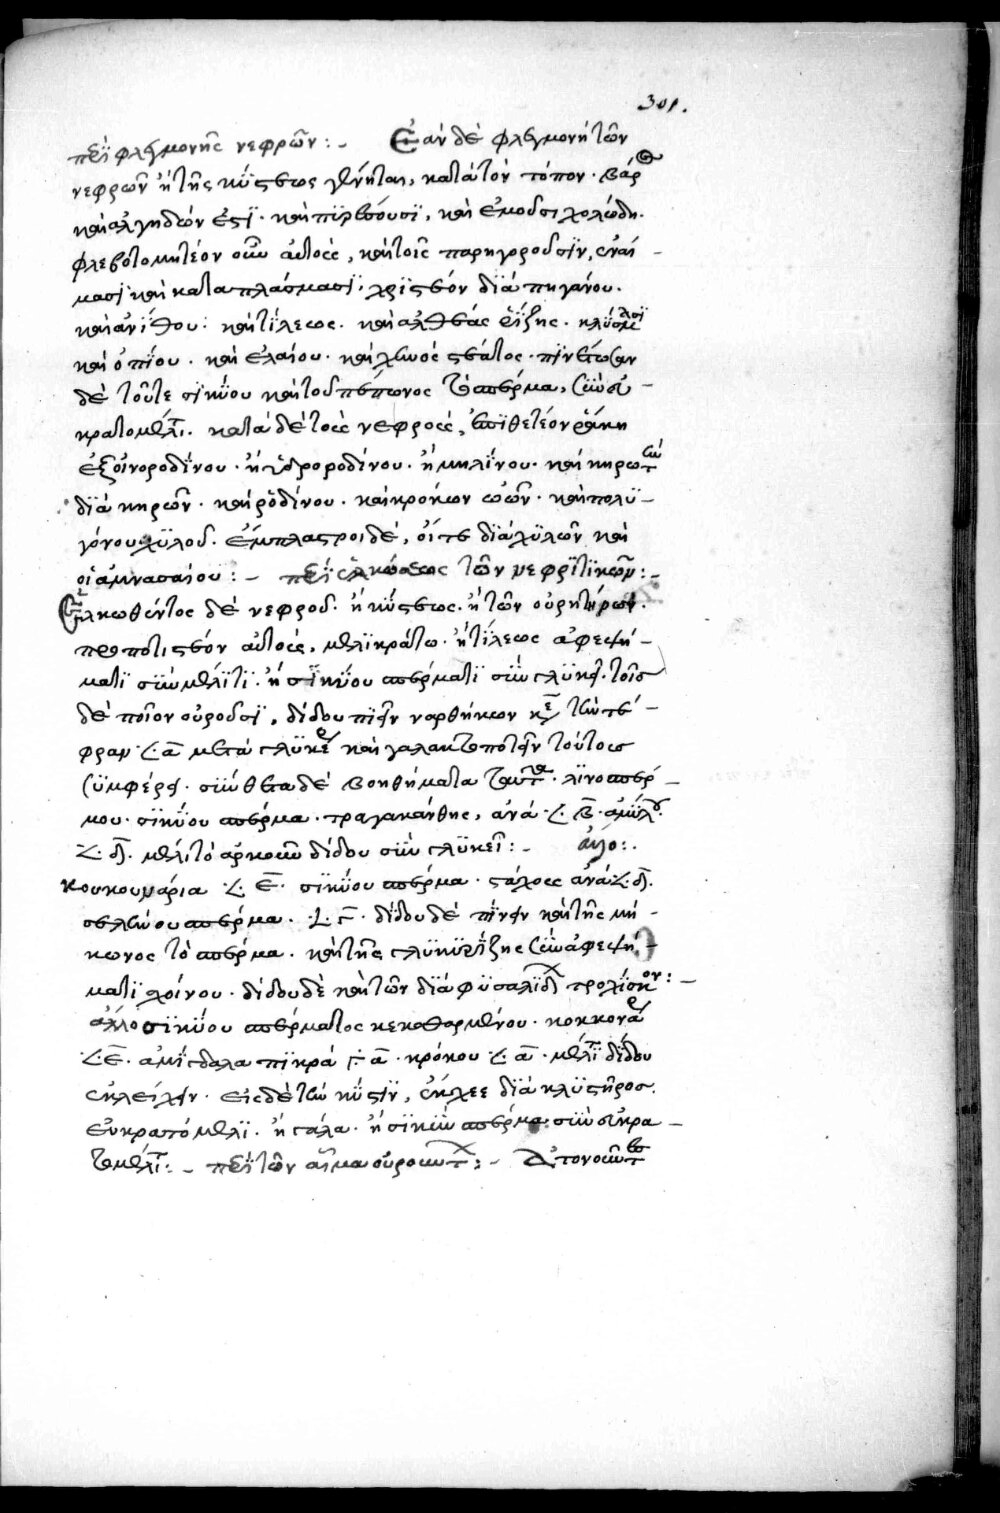 301.
περὶ φλεγμονῆς νεφρῶν :- Ἐὰν δὲ φλεγμονὴ τῶν
νεφρῶν ἢ τῆς κύστεως γένηται, κατὰ τὸν τόπον · βάρος
καὶ ἀλγηδών ἐστι · καὶ πυρέσσουσι, καὶ ἐμοῦσι χολώδη.
φλεβοτομητέον οὖν αὐτούς, καὶ τοῖς παρηγοροῦσιν,
μασι καὶ καταπλάσμασι · χρηστέον διὰ πηγάνου.
καὶ ἀνίθου · καὶ τίλεως · καὶ ἀλθέας ῥίζης · κλύσμασι
καὶ ὀπίου · καὶ ἐλαίου · καὶ χηνὸς στέατος · πινέτωσαν
δὲ τοῦτε σικύου καὶ τοῦ πέπωνος τὸ σπέρμα, σὺν εὐ-
κρατομέλιτι. κατὰ δὲ τοὺς νεφρούς, ἐπιθετέον ῥάκη
ἐξ οἰνοροδίνου · ἢ ὑδροροδίνου · ἢ μηλίνου · καὶ κηρωτῶ
διὰ κηρῶν · καὶ ῥοδίνου · καὶ κρόκων ὠῶν · καὶ πολυ-
γόνου χυλοῦ · ἔμπλαστροι δέ, οἵτε διὰ χυλῶν καὶ
οἱ ἀμνασαίου :- περὶ ἑλκώσεως τῶν νεφριτικῶν :-
Ἑλκωθέντος δὲ νεφροῦ · ἢ κύστεως · ἢ τῶν οὐρητήρων.
προποτιστέον αὐτούς, μελικράτω · ἢ τίλεως ἀφεψή-
ματι σὺν μέλιτι · ἢ σικύου σπέρματι σὺν γλυκεῖ · τοῖς
δὲ ποῖον οὐροῦσι, δίδου πιεῖν ναρθήκων τὴν τέ-
φραν · 𐅻 α μετὰ γλυκέος καὶ γάλακτοποτεῖν τούτοις
συμφέρει · σύνθετα δὲ βοηθήματα ταῦτα · λινοσπέρ-
μου · σικύου σπέρμα · τραγακάνθης, ἀνὰ · 𐅻 · β · ἀμύλου ·
𐅻 · δ · μέλι τὸ ἀρκοῦν δίδου σὺν γλυκεῖ :- ἄλλο :·
κουκουμάρια 𐅻 · ε · σικύου σπέρμα · στάχους ἀνὰ 𐅻 · δ.
σελίνου σπέρμα · 𐅻 · γ · δίδου δὲ πίνειν καὶ τῆς μή-
κωνος τὸ σπέρμα · καὶ τῆς γλυκυρρίζης σὺν ἀφεψή-
ματι σχοίνου · δίδου δὲ καὶ τῶν διὰ φυσαλίδων τροχίσκον :-
ἄλλο σικύου σπέρματος κεκαθαρμένου · κοκκονάρια
𐅻 ε · ἀμύγδαλα πικρὰ α · κρόκου · 𐅻 α · μέλιτι δίδου
ἐκλείχειν · εἰς δὲ τὴν κύστιν, ἔγχεε διὰ κλυστῆρος.
εὐκρατόμελι · ἢ γάλα · ἢ σικύου σπέρμα σὺν εὐκρα-
τομέλιτι :- περὶ τῶν αἷμα οὐρούντων :- Ἀτονούντων